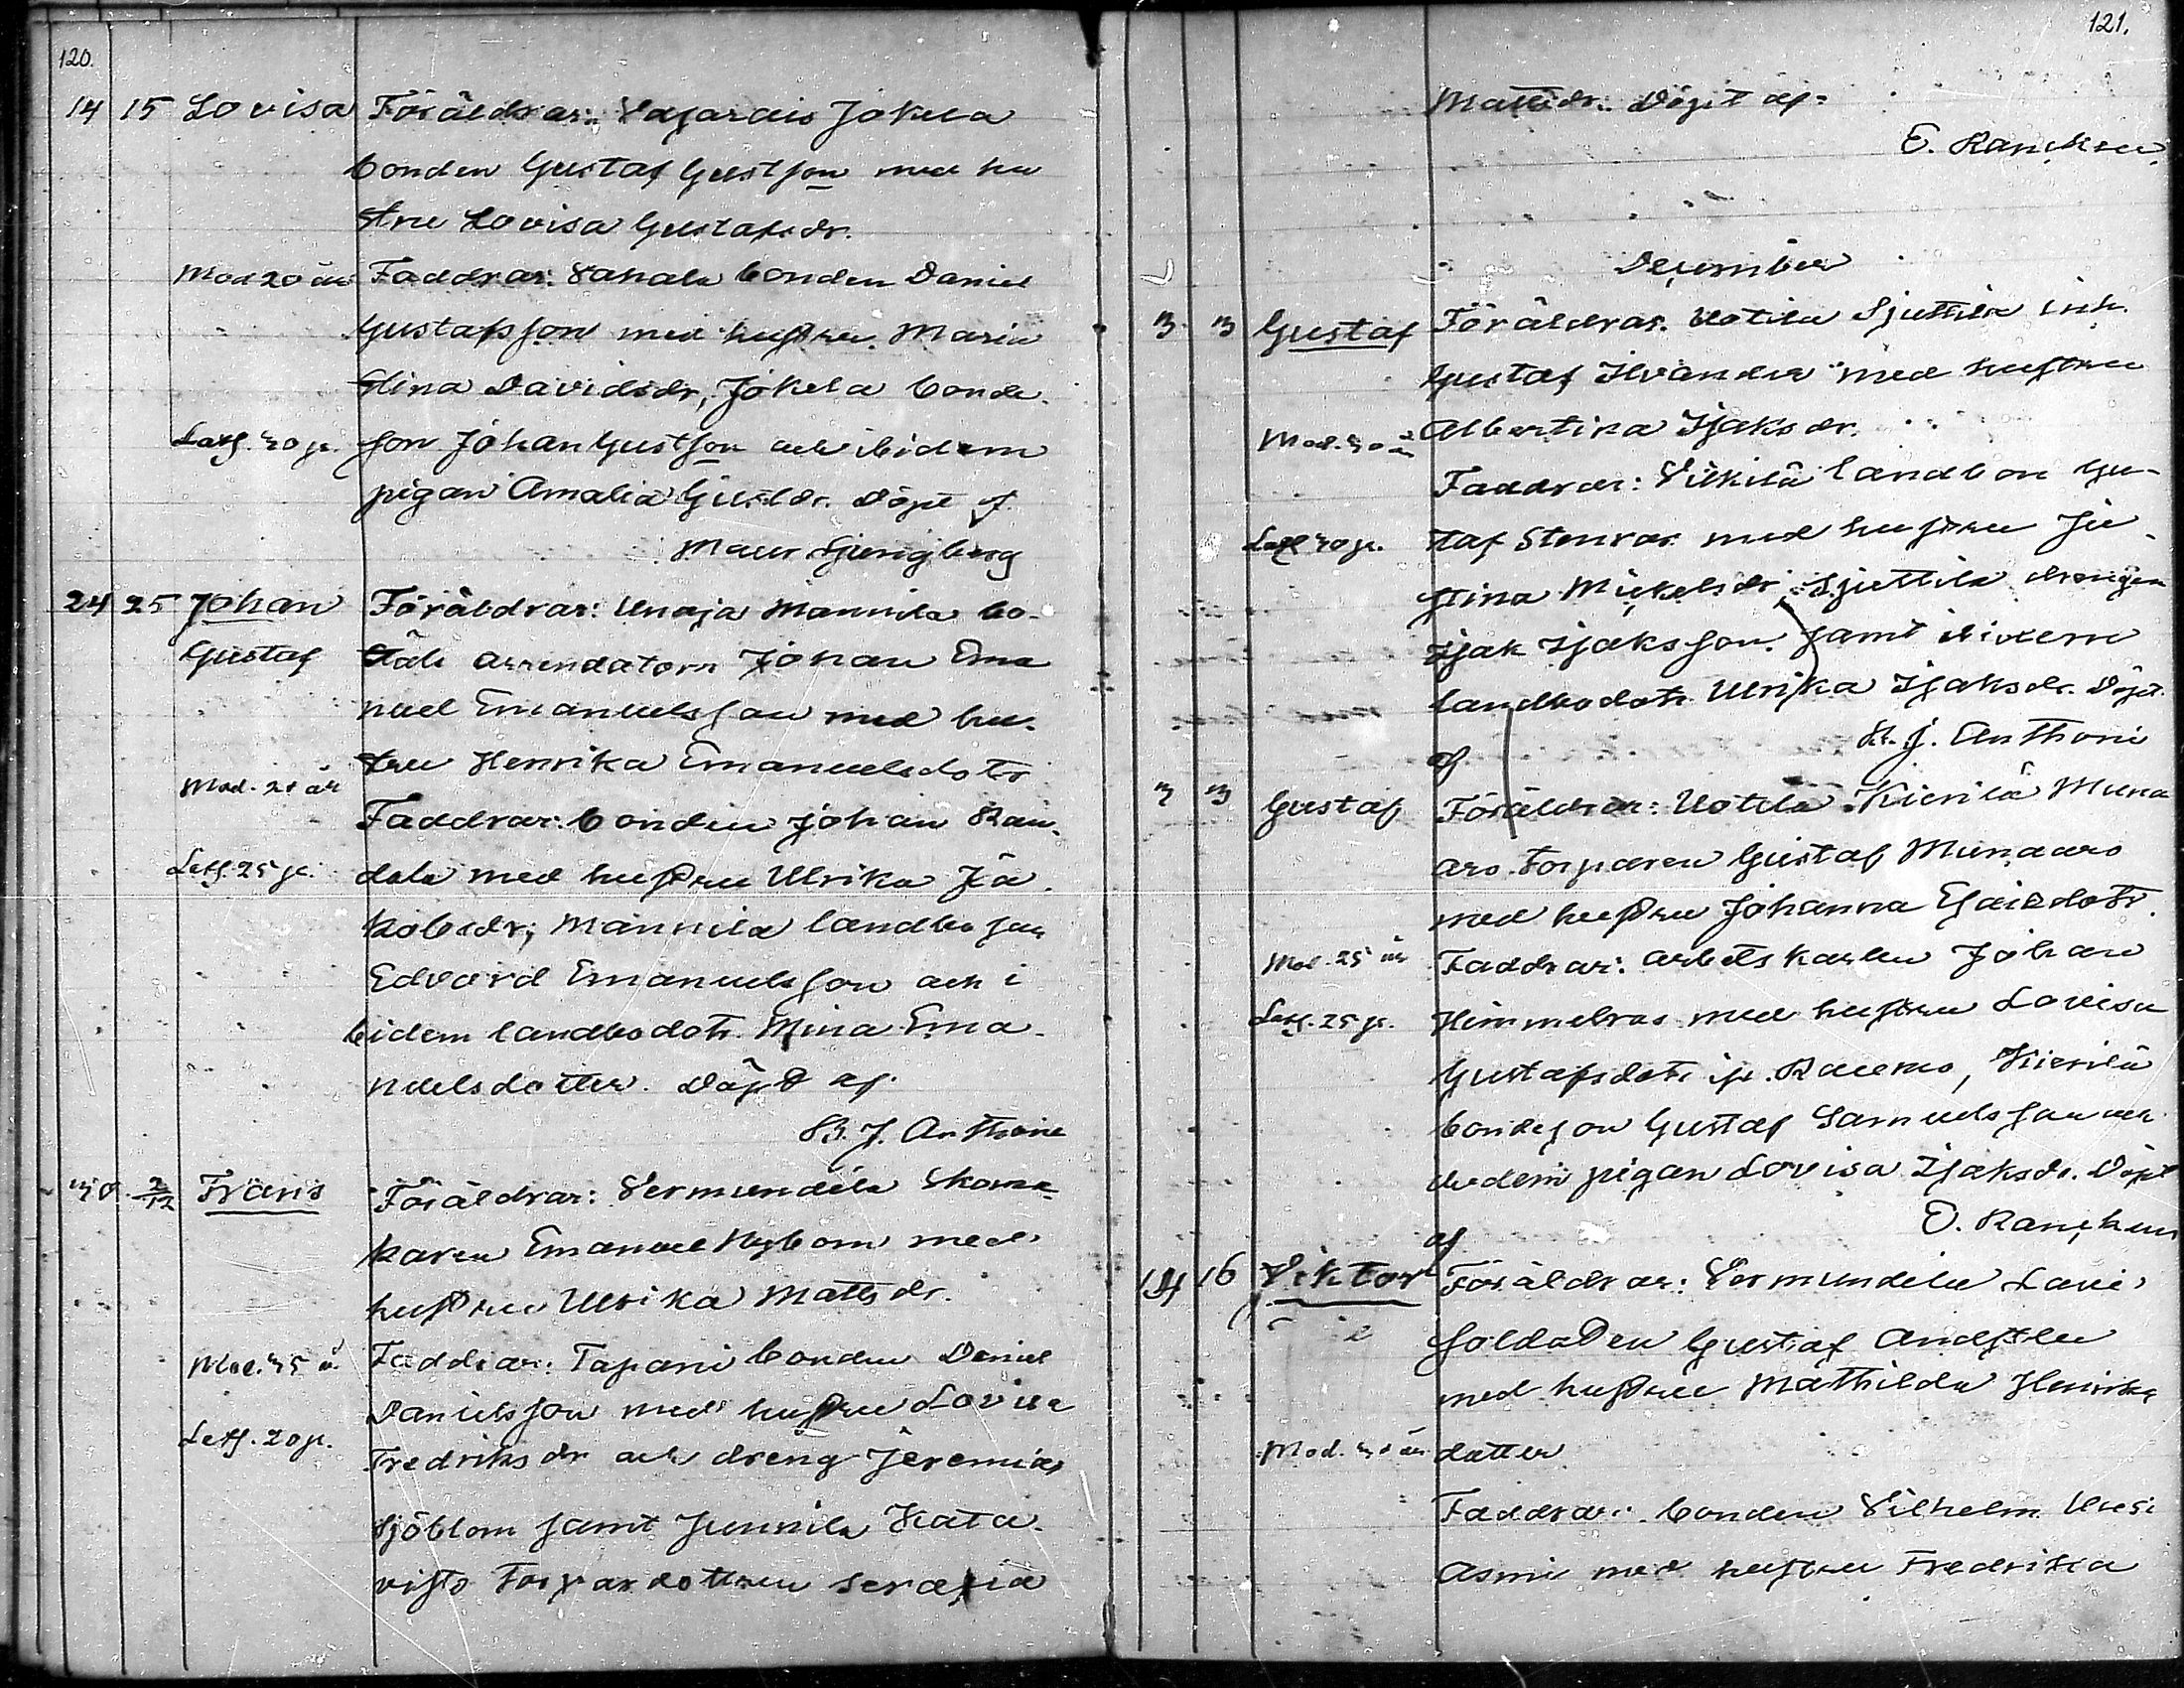 120.
14 15 Lovisa Föräldrar: Vasarais Jokela
bonden Gustaf Gustsson med hu
stru Lovisa Gustafsdr.
Mod 20 år Faddrar: Vahala bonden Daniel
Gustafsson med hustru Maria
Stina Davidsdr, Jokela bonde
Latf. 30 p. son Johan Gustsson och ibidem
pigan Amalia Gustdr. Döpt af
Maur Ljungberg
24 25 Johan Föräldrar: Unaja Mannila bo-
Gustaf ställs arrendatorn Johan Ema
nuel Emanuelsson med hu-
stru Henrika Emanuelsdotr
Mod. 21 år
Faddrar: bonden Johan Ran-
Latf. 25 p. dala med hustru Ulrika Ja
kobsdr, Mannila landboson
Edvard Emanuelsson och i
bidem landbodotr. Mina Ema-
nuelsdotter. Döpt af
B. J. Anthoni
30 2/12 Frans Föräldrar: Vermundila Skoma-
karen Emanuel Nybom med
hustru Ulrika Mattsdr.
Mod. 35 å. Faddrar: Tapani bonden Daniel
Danielsson med hustru Lovisa
Latf. 20 p. Fredriksdr och dreng Jeremias
Sjöblom samt Junnila Kata-
visto Torpardottren Serafia
121.
Mattsdr. Döpt af
E. Rancken
December
3 3 Gustaf Föräldrar: Uotila Sjuttila inh.
Gustaf Ilvander med hustru
Mod. 30 år Albertina Isaksdr.
Faddrar: Vilkilä landbon Gu-
Latf 30 p. staf Stenroos med hustru Ju
stina Mickelsdr, Sjuttila drengen
Isak Isaksson samt ibidem
landbodotr. Ulrika Isaksdr. Döpt
af B. J. Anthoni
3 3 Gustaf Föräldrar: Uotila Kierilä Muna
aro Torparen Gustaf Munaaro
med hustru Johanna Esaiedotr.
Mod. 25 år Faddrar: arbetskarlen Johan
Latf. 25 p. Himmelroos med hustru Lovisa
Gustafsdotr fr. Raumo, Kierilä
bondeson Gustaf Samuelsson och
ibidem pigan Lovisa Isaksdr. Döpt
af E. Rancken
14 16 Viktor Föräldrar: Vermundila Lavi
soldaten Gustaf
med hustru Mathilda Henriks
Mod. år dotter
Faddrar: bonden Vilhelm Uusi
Asmi med hustru Fredrika